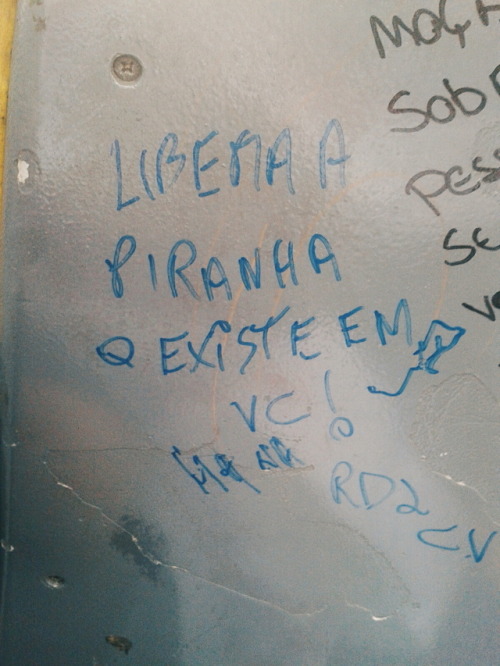 LIBERA A
PIRANHA
Q EXISTE EM
VC!
RD2
CV
MOÇA
SOB
PES
SE